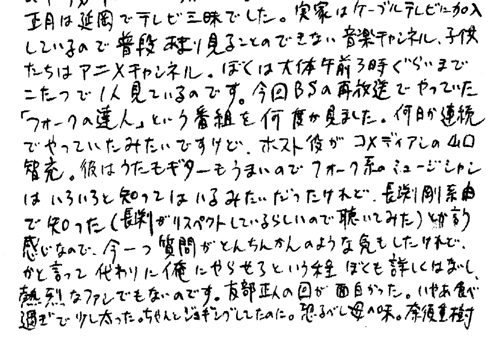 正月は延岡でテレビ三昧でした。実家はケーブルテレビに加入
しているので普段あまり見ることのできない音楽チャンネル、子供
たちはアニメチャンネル。ぼくは大体午前3時ぐらいまで
こたつで1人見ているのです。今回BSの再放送でやっていた
「フォークの達人」という番組を何度か見ました。何日か連続
でやっていたみたいですけど、ホスト役がコメディアンの山口
智充。彼はうたもギターもうまいのでフォーク系のミュージシャン
はいろいろと知ってはいるみたいだったけれど、長渕剛経由
で知った(長渕がリスペクトしているらしいので聴いてみた)とか言う
感じなので、今一つ質問がとんちんかんのような気もしたけれど、
かと言って代わりに俺にやらせろという程ぼくも詳しくはないし、
熱烈なファンでもないのです。友部正人の回が面白かった。いやあ食べ
過ぎで少し太った。ちゃんとジョギングしてたのに。恐るべし母の味。奈須重樹